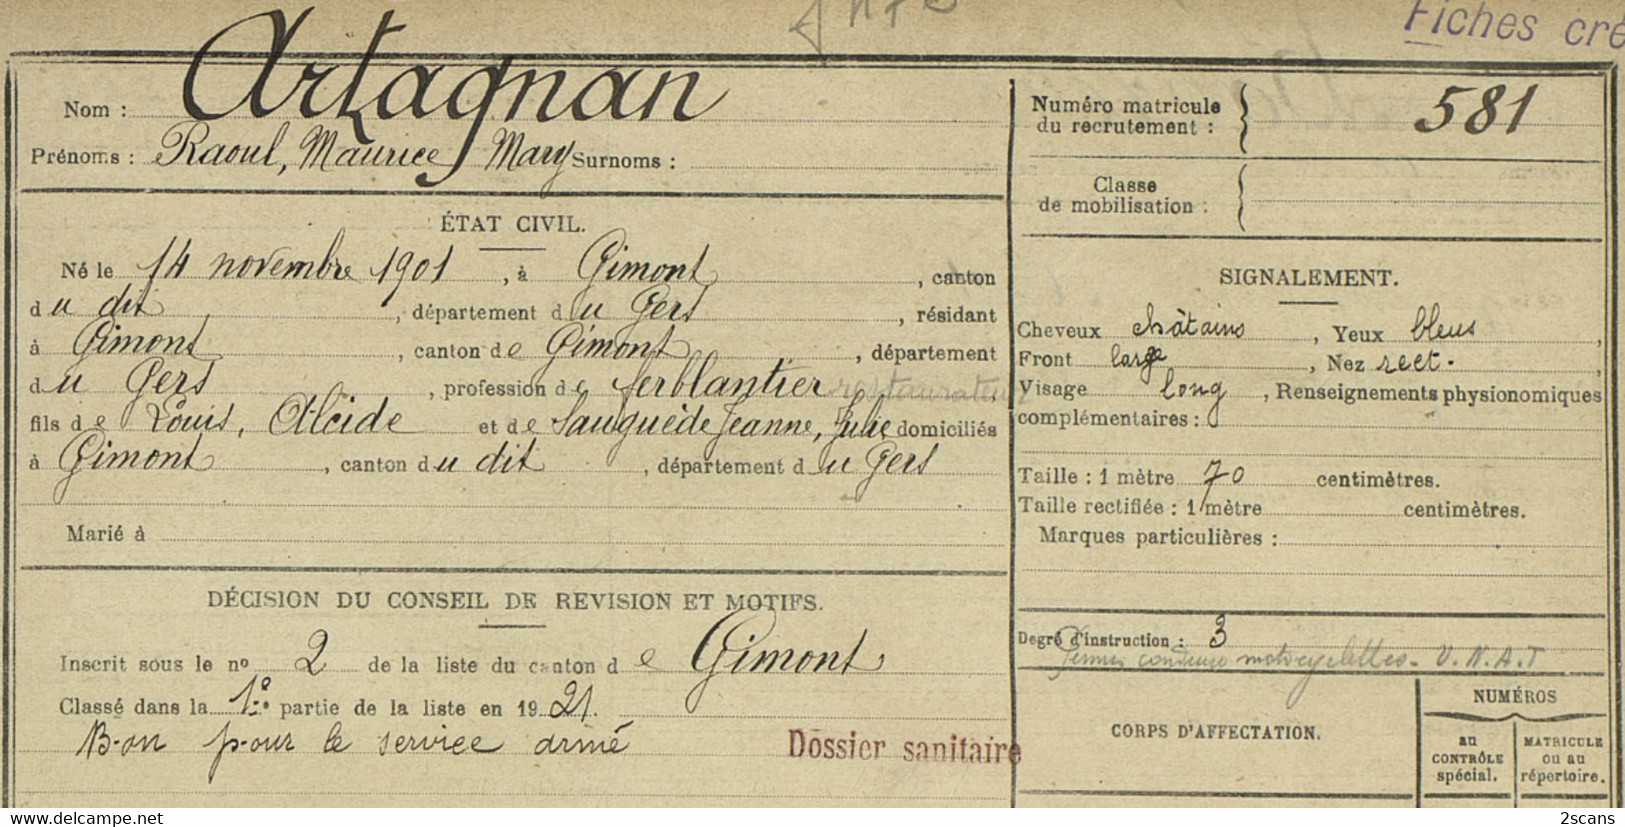 Fiches cré
Nom : Artagnan
Prénoms : Raoul, Maurice, Mary Surnoms :
ÉTAT CIVIL.
Né le 14 novembre 1901, à Gimont, canton
du dit, département du Gers, résidant
à Gimont, canton de Gimont, département
du Gers, profession de ferblantier restaurateur
fils de Louis, Alcide et de Sauguède Jeanne, Julie domiciliés
à Gimont, canton du dit, département du Gers
Marié à
DÉCISION DU CONSEIL DE REVISION ET MOTIFS.
Inscrit sous le no 2 de la liste du canton de Gimont
Classé dans la 1e partie de la liste en 1921.
Bon pour le service armé
Dossier sanitaire
Numéro matricule du recrutement : 581
Classe
de mobilisation :
SIGNALEMENT.
Cheveux châtains, Yeux bleus,
Front large, Nez rect.,
Visage long, Renseignements physionomiques
complémentaires :
Taille : 1 mètre 70 centimètres.
Taille rectifiée : 1 mètre centimètres.
Marques particulières :
Degré d'instruction : 3
Permis conduire motocyclettes. V.N.A.T
CORPS D'AFFECTATION.
NUMÉROS
au
CONTRÔLE
spécial.
MATRICULE
ou au
répertoire.
www.delcampe.net
2scans